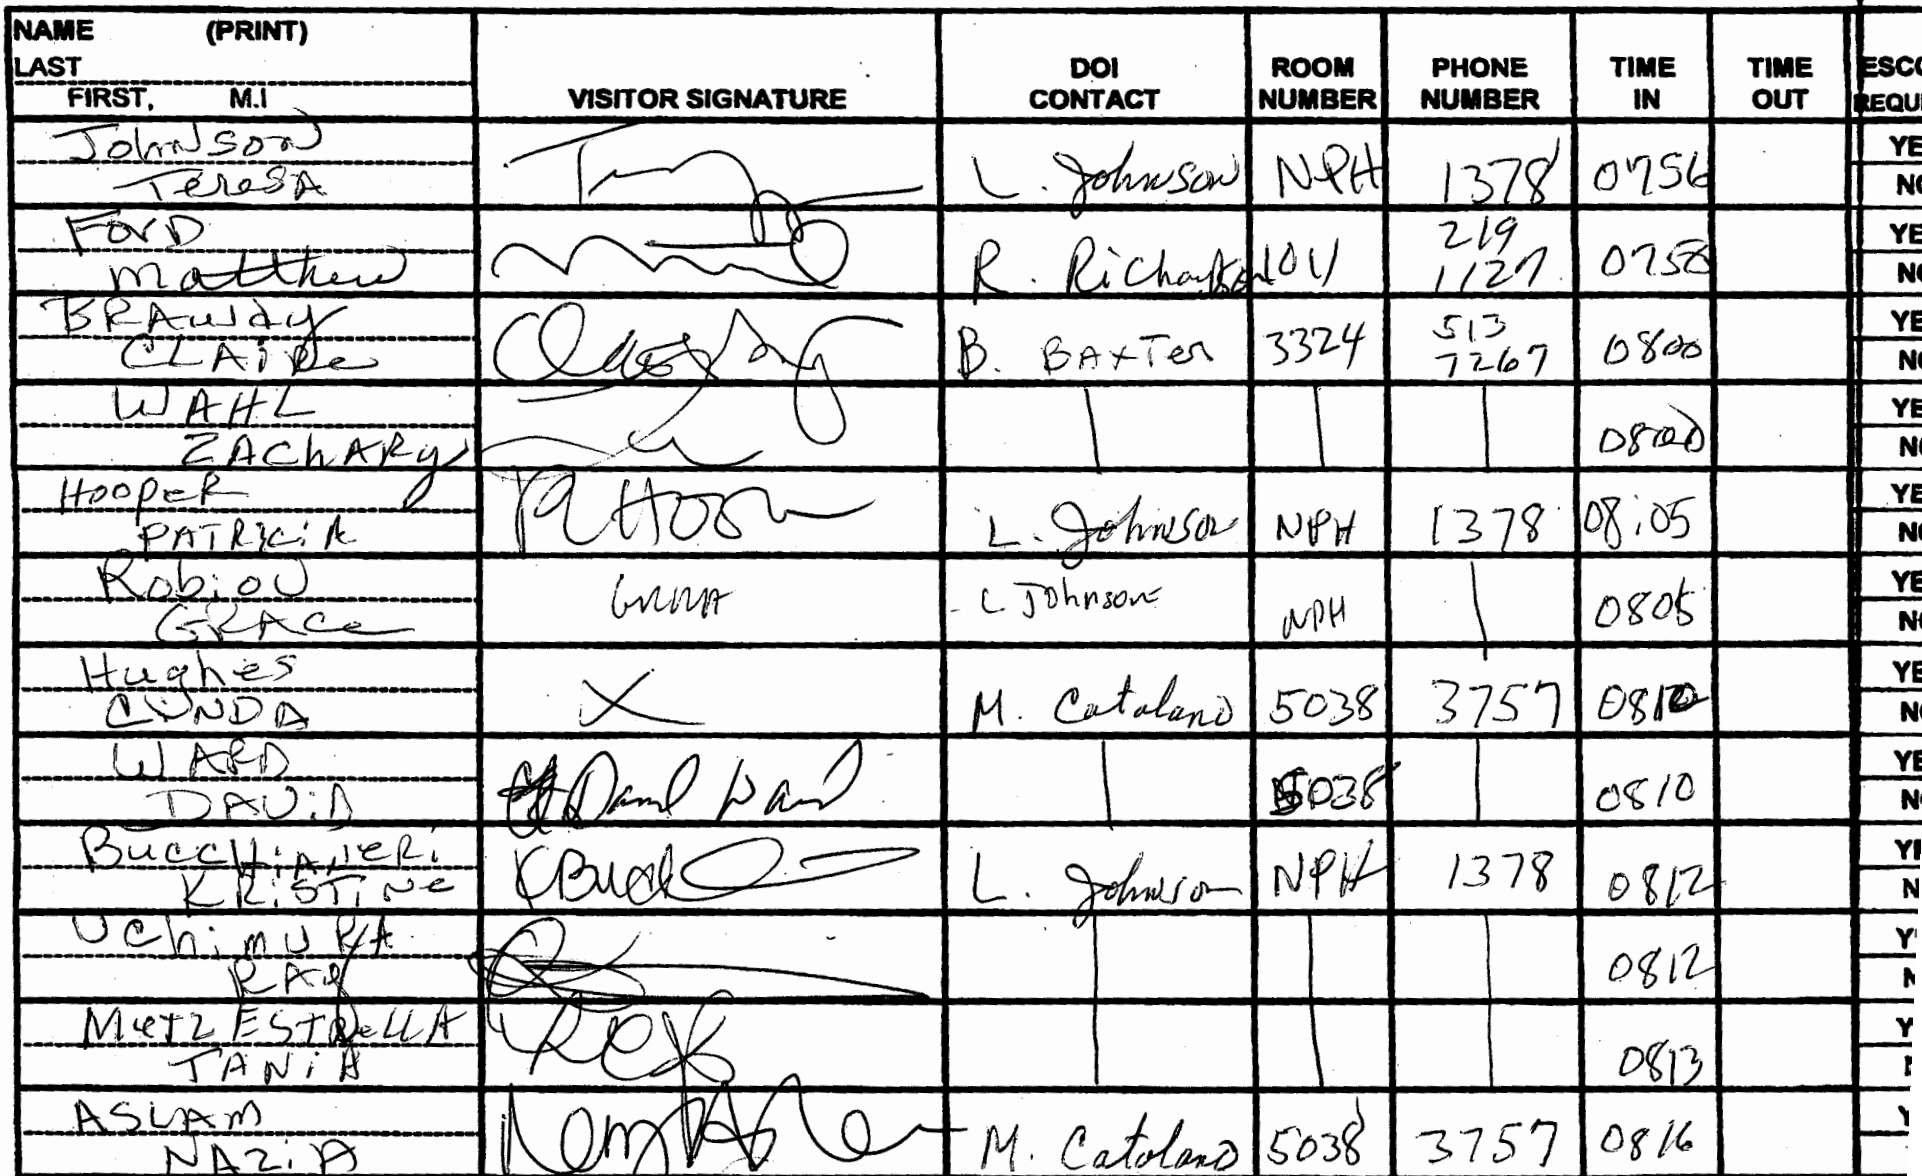 NAME (PRINT)
LAST
FIRST, M.I
VISITOR SIGNATURE
DOI CONTACT
ROOM NUMBER
PHONE NUMBER
TIME IN
TIME OUT
Johnson
Teresa L. Johnson NPH 1378 0756
Ford 219
Matthew R. Richardson 1127 0758
BRAWdy 513
CLAIRe B. BAXTer 3324 7267 0800
WAHL
ZACHARy 0800
HoopeR
PATRiciA L. Johnson NPH 1378 08:05
RobioU
GRACe L Johnson NPH 0805
Hughes
X M. Catalano 5038 3757 0810
WARD
DAViD David Ward 5038 0810
BuccHiANeRi
KRiSTiNe L. Johnson NPH 1378 0812
UchimuRA
RAy 0812
MetZ ESTReLLA
TANiA 0813
ASLAm
NAZiA M. Catalano 5038 3757 0816